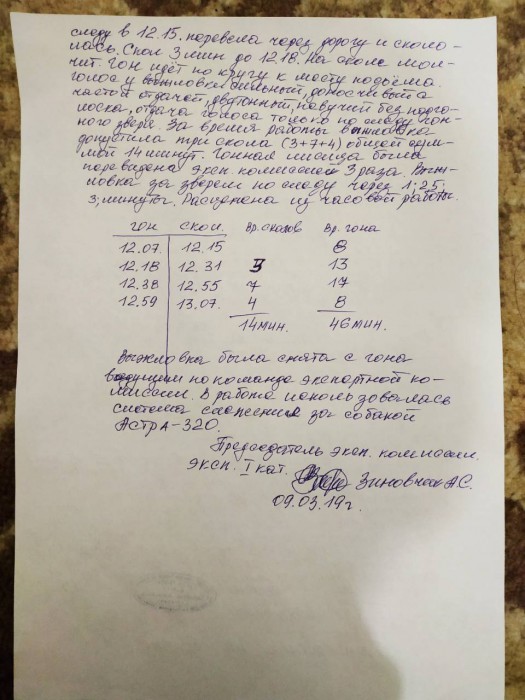 следу в 12.15. перевела через дорогу и сколо-
лась. Скол 3 мин до 12.18. На сколе мол-
чит. Гон идёт по кругу к месту подъёма.
Голос у выжловки сильный, доносчивый а
частой отдачей, двутонный, певучий без подго-
лоска, отдача голоса только по следу гон-
ного зверя. За время работы выжловка
допустила три скола (3+7+4) общей сум-
мой 14 минут. Гонная лисица была
перевидена эксп. комиссией 3 раза. Выж-
ловка за зверем по следу через 1; 2,5;
3; минуты. Расценена из часовой работы.
гон скол Вр. сколов Вр. гона
12.07. 12.15 8
12.18 12.31 3 13
12.38 12.55 7 17
12.59 13.07. 4 8
14 мин. 46 мин.
Выжловка была снята с гона
ведущим по команде экспертной ко-
миссии. В работе использовалась
система слежения за собакой
Астра-320.
Председатель эксп. комиссии.
эксп. I кат. Зиновчик А.С.
09.03.19г.